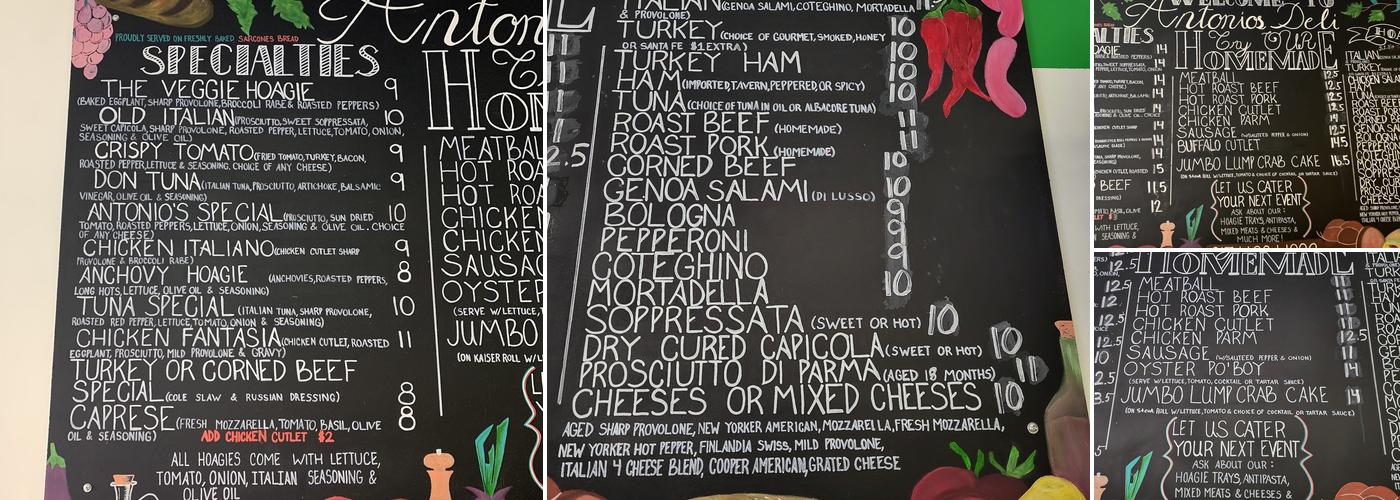 Anton
PROUDLY SERVED ON FRESHLY BAKED SARCONES BREAD
SPECIALTIES
THE VEGGIE HOAGIE 9
(BAKED EGGPLANT, SHARP PROVOLONE, BROCCOLI RABE & ROASTED PEPPERS)
OLD ITALIAN (PROSCIUTTO, SWEET SOPPRESSATA, 10
SWEET CAPICOLA, SHARP PROVOLONE, ROASTED PEPPER, LETTUCE, TOMATO, ONION,
SEASONING & OLIVE OIL)
CRISPY TOMATO (FRIED TOMATO, TURKEY, BACON, 9
ROASTED PEPPER, LETTUCE & SEASONING. CHOICE OF ANY CHEESE)
DON TUNA (ITALIAN TUNA, PROSCIUTTO, ARTICHOKE, BALSAMIC 9
VINEGAR, OLIVE OIL & SEASONING)
ANTONIO'S SPECIAL (PROSCIUTTO, SUN DRIED 10
TOMATO, ROASTED PEPPERS, LETTUCE, ONION, SEASONING & OLIVE OIL. CHOICE
OF ANY CHEESE)
CHICKEN ITALIANO (CHICKEN CUTLET SHARP 9
PROVOLONE & BROCCOLI RABE)
ANCHOVY HOAGIE (ANCHOVIES, ROASTED PEPPERS, 8
LONG HOTS, LETTUCE, OLIVE OIL & SEASONING)
TUNA SPECIAL (ITALIAN TUNA, SHARP PROVOLONE, 10
ROASTED RED PEPPER, LETTUCE, TOMATO, ONION & SEASONING)
CHICKEN FANTASIA (CHICKEN CUTLET, ROASTED 11
EGGPLANT, PROSCIUTTO, MILD PROVOLONE & GRAVY)
TURKEY OR CORNED BEEF
SPECIAL (COLE SLAW & RUSSIAN DRESSING) 8
CAPRESE (FRESH MOZZARELLA, TOMATO, BASIL, OLIVE 8
OIL & SEASONING) ADD CHICKEN CUTLET $2
ALL HOAGIES COME WITH LETTUCE,
TOMATO, ONION, ITALIAN SEASONING &
OLIVE OIL
HOM
MEATBA
HOT RO
HOT RO
CHICKEN
CHICKEN
SAUSAG
OYSTER
(SERVE W/LETTUC
JUMBO
(ON KAISER ROLL W/L
ITALIAN (GENOA SALAMI, COTEGHINO, MORTADELLA
& PROVOLONE)
TURKEY (CHOICE OF GOURMET, SMOKED, HONEY 10
OR SANTA FE $1 EXTRA)
TURKEY HAM 10
HAM (IMPORTED, TAVERN, PEPPERED, OR SPICY) 10
TUNA (CHOICE OF TUNA IN OIL OR ALBACORE TUNA) 10
ROAST BEEF (HOMEMADE) 11
ROAST PORK (HOMEMADE) 11
CORNED BEEF 10
GENOA SALAMI (DI LUSSO) 10
BOLOGNA 9
PEPPERONI 9
COTEGHINO 9
MORTADELLA 10
SOPPRESSATA (SWEET OR HOT) 10
DRY CURED CAPICOLA (SWEET OR HOT) 10
PROSCIUTTO DI PARMA (AGED 18 MONTHS)
CHEESES OR MIXED CHEESES 10
AGED SHARP PROVOLONE, NEW YORKER AMERICAN, MOZZARELLA, FRESH MOZZARELLA,
NEW YORKER HOT PEPPER, FINLANDIA SWISS, MILD PROVOLONE,
ITALIAN 4 CHEESE BLEND, COOPER AMERICAN, GRATED CHEESE
2.5
WELCOME TO
Antonios Deli
Try OUR
HOMEMADE
MEATBALL 12.5
HOT ROAST BEEF
HOT ROAST PORK
CHICKEN CUTLET
CHICKEN PARM
SAUSAGE (W/SAUTEED PEPPER & ONION)
BUFFALO CUTLET 14.5
JUMBO LUMP CRAB CAKE 16.5
(ON ROLL W/LETTUCE, TOMATO & CHOICE OF COCKTAIL OR TARTAR SAUCE)
LET US CATER
YOUR NEXT EVENT
ASK ABOUT OUR:
HOAGIE TRAYS, ANTIPASTA,
MIXED MEATS & CHEESES &
MUCH MORE!
HOMEMADE
MEATBALL 11
HOT ROAST BEEF
HOT ROAST PORK
CHICKEN CUTLET
CHICKEN PARM 12.5
SAUSAGE (W/SAUTEED PEPPER & ONION) 11
OYSTER PO'BOY 14
(SERVE W/LETTUCE, TOMATO, COCKTAIL OR TARTAR SAUCE)
JUMBO LUMP CRAB CAKE 14
(ON ROLL W/LETTUCE, TOMATO & CHOICE OF COCKTAIL OR TARTAR SAUCE)
LET US CATER
YOUR NEXT EVENT
ASK ABOUT OUR:
HOAGIE TRAYS, ANTIPASTA,
MIXED MEATS & CHEESES &